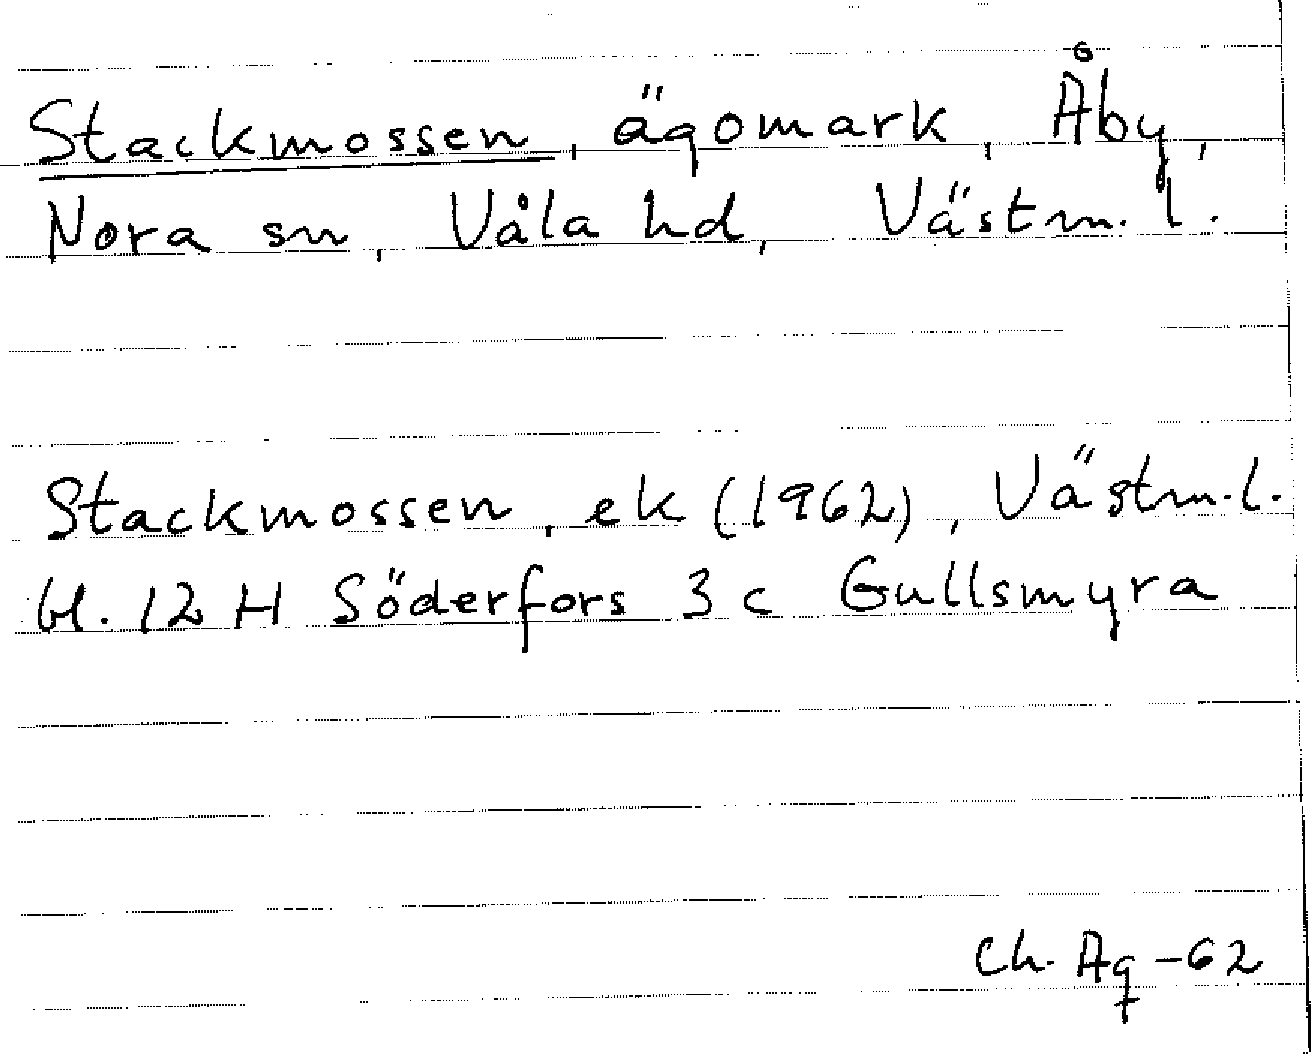 Stackmossen, ägomark, Åby,
Nora sn, Våla hd, Västm. l.
Stackmossen, ek (1962), Västm.l.
bl. 12 H Söderfors 3 c Gullsmyra
Ch. Ag -62